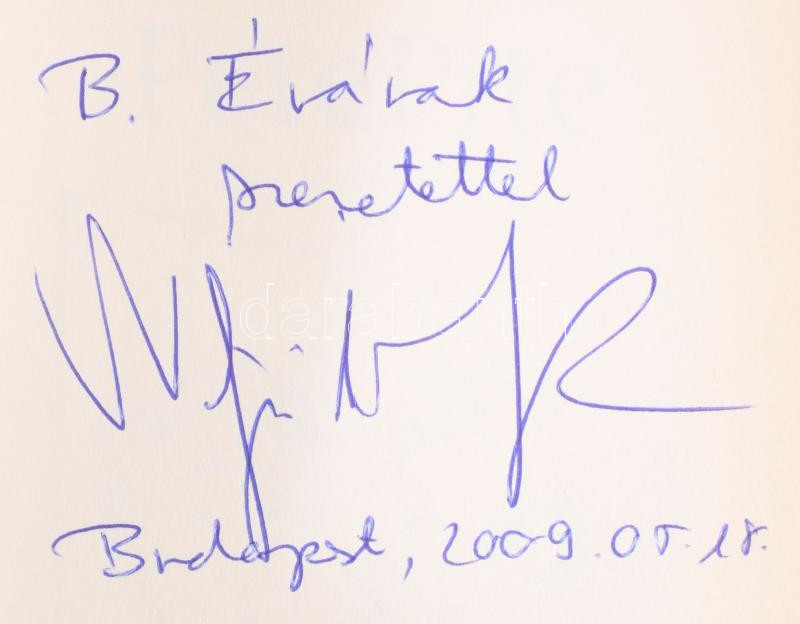 B. Évának
szeretettel
darabanth
Budapest, 2009.05.18.